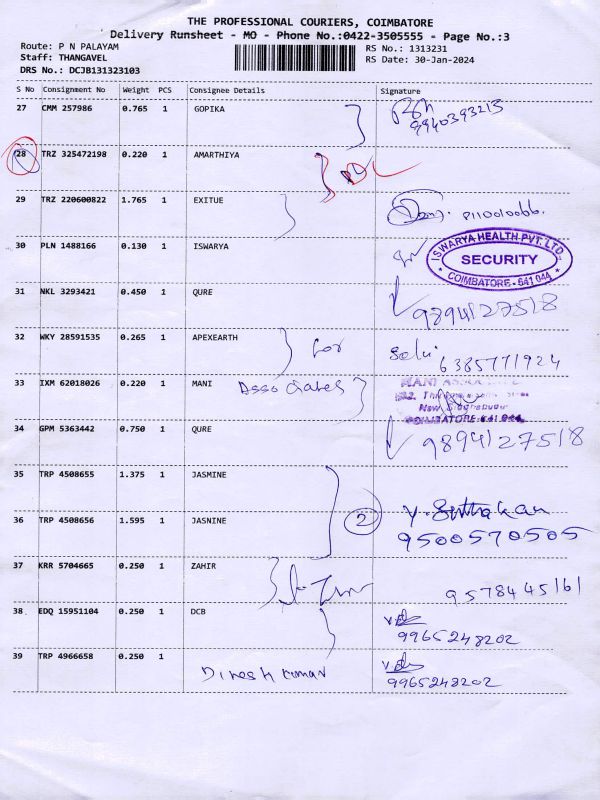 THE PROFESSIONAL COURIERS, COIMBATORE
Delivery Runsheet - MO - Phone No.:0422-3505555 - Page No.:3
Route: P N PALAYAM
RS No.: 1313231
Staff: THANGAVEL
RS Date: 30-Jan-2024
DRS No.: DCJB131323103
S No Consignment No Weight PCS Consignee Details Signature
27 CMM 257986 0.765 1 GOPIKA
9940393213
28 TRZ 325472198 0.220 1 AMARTHIYA
29 TRZ 220600822 1.765 1 EXITUE
P110010066.
30 PLN 1488166 0.130 1 ISWARYA
ISWARYA HEALTH PVT. LTD.
SECURITY
COIMBATORE - 641 044
31 NKL 3293421 0.450 1 QURE
9894127518
32 WKY 28591535 0.265 1 APEXEARTH for
Selvi 6385771924
33 IXM 62018026 0.220 1 MANI Associates
COIMBATORE-641 044
34 GPM 5363442 0.750 1 QURE
9894127518
35 TRP 4508655 1.375 1 JASMINE
2
36 TRP 4508656 1.595 1 JASNINE
9500570505
37 KRR 5704665 0.250 1 ZAHIR
9578445161
38 EDQ 15951104 0.250 1 DCB
9965248202
39 TRP 4966658 0.250 1
Dinesh kumar
9965248202